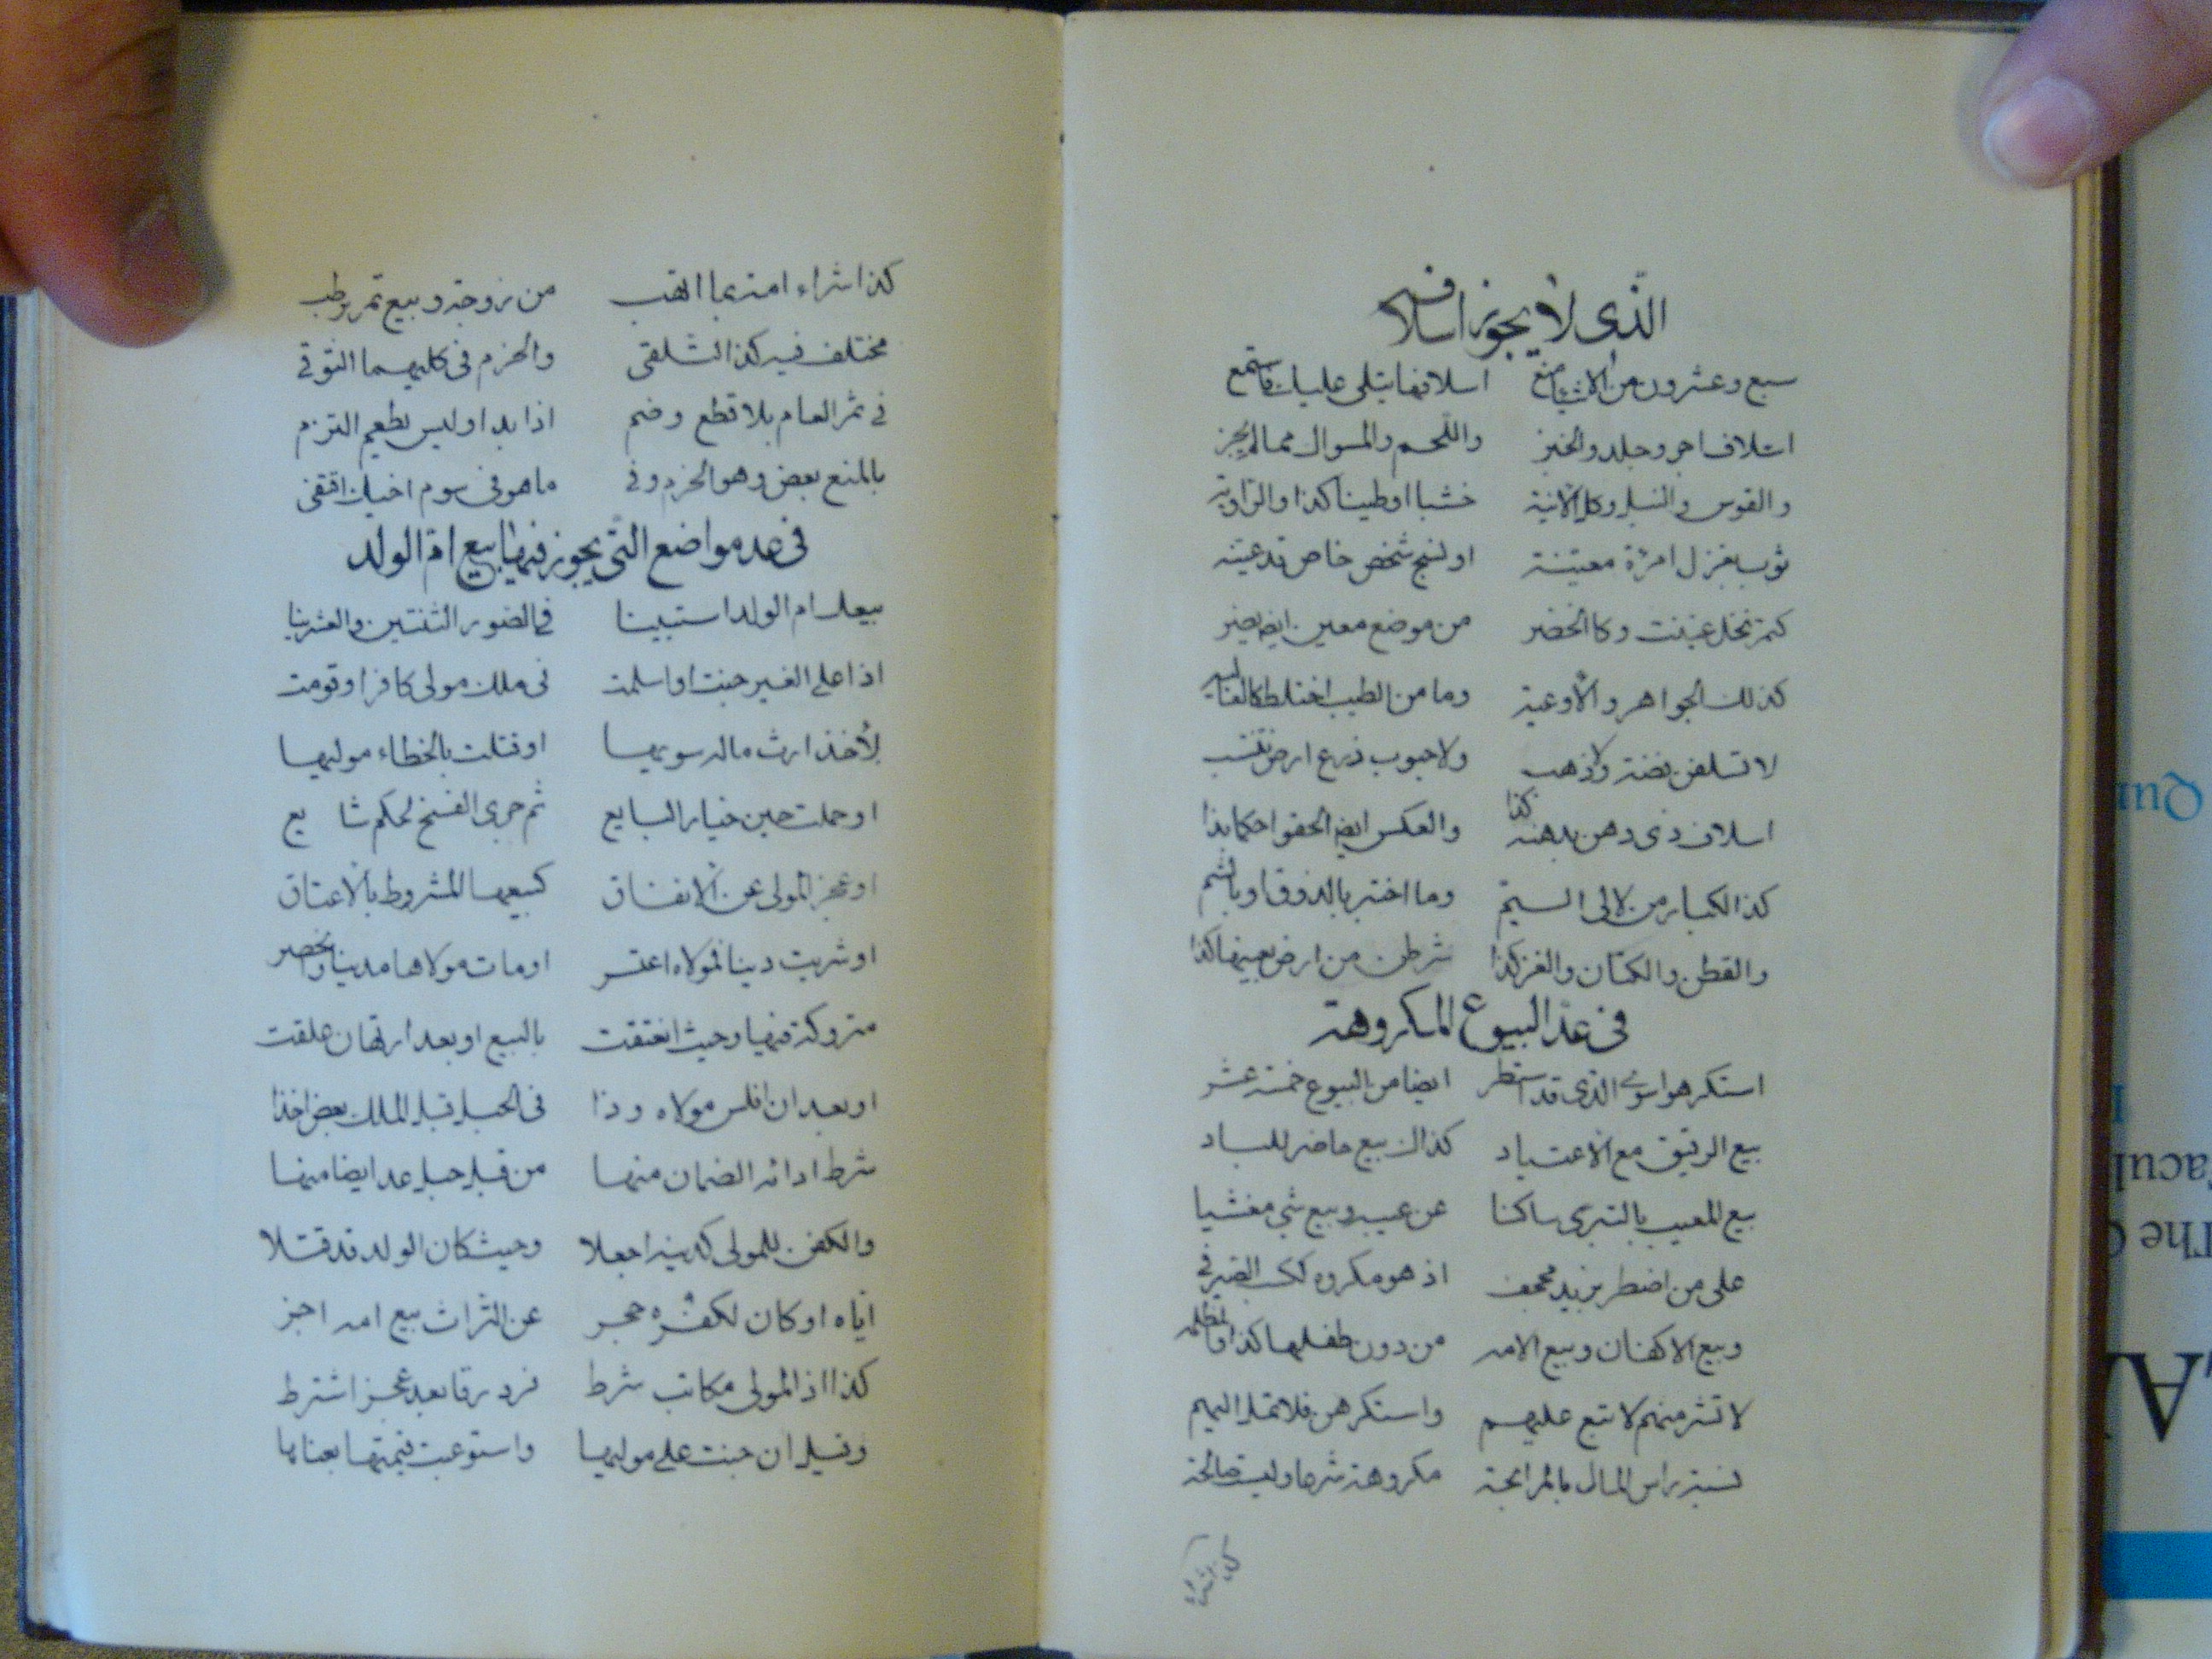 الذى لا يجوز اسلافه
سبع وعشرون من الاشيا منع اسلافها يتلى عليك فاستمع
اسلاف اجر وجلد والخبز واللحم والمسوال مما لم يجز
والقوس والنبل وكل الآنية خشبا او طينا كذا والزاوية
ثوب بغزل امرءة معينة او لنسج شخص خاص قد عينه
كتمر نخل عينت وكالخضر من موضع معين ايضا يضر
كذلك الجواهر والأوعية وما من الطيب اختلط كالغاليه
لا تسلفن بفضة ولا ذهب ولا حبوب زرع ارض تنتسب
اسلاف ذى دهن بدهنه كذا والعكس ايضا الحقوا حكما بذا
كذا الكبار من لالى اليتيم وما اختبر بالذوق او بالشم
والقطن والكتان والغزل كذا شرطن من ارض بعينها كذا
فى عد البيوع المكروهة
استكرهوا سوى الذى قد استطر ايضا من البيوع خمسة عشر
بيع الرقيق مع الاعتياد كذاك بيع حاضر للباد
بيع المعيب بالتبرى ساكتا عن عيب وبيع شىء مغشيا
على من اضطر بزيد مجحف اذ هو مكروه ككسب الصيرفى
وبيع الاكفان وبيع الامه من دون طفلها كذا والظلمه
لا تشتر منهم لا تبع عليهم واستكرهن فلا تمل اليهم
نسبة راس المال بالمرابحة مكروهة شرعا وليست صالحة
كذا شراء
كذا شراء امة بما انتهب من زوجة وبيع تمر برطب
مختلف فيه كذا التلقى والحزم فى كليهما التوقى
فى ثمر العام بلا قطع وضم اذا بدا وليس بطعم التزم
بالمنع بعض وهو الحزم وفى ما هو فى سوم اخيك اقتفى
فى عد مواضع التى يجوز فيها بيع ام الولد
بيعك ام الولد استبينا فى الصور الثنتين والعشرينا
اذا على الغير جنت او اسلمت فى ملك مولى كافر او قومت
لأخذ ارث ماله سويها او قتلت بالخطاء موليها
او حملت حين خيار البايع ثم جرى الفسخ لحكم شايع
او عجز المولى عن الانفاق كبيعها المشروط بالاعتاق
او شريت دينا لمولاه اعتسر او مات مولاها مدينا وانحصر
متروكة فيها وحيث انعتقت بالبيع او بعد ارتهان علقت
او بعد ان افلس مولاه وذا فى الحبل قبل الملك بعض اخذا
شرط اداءه الضمان منها من قبل حبل عد ايضا منها
والكفن للمولى كدينه اجعلا وحيث كان الولد قد قتلا
اياه او كان لكفره حجر عن التراث بيع امه اجز
كذا اذ المولى مكاتب شرط فرد رقا بعد عجز اشترط
وقيل ان جنت على موليها واستوعبت قيمتها